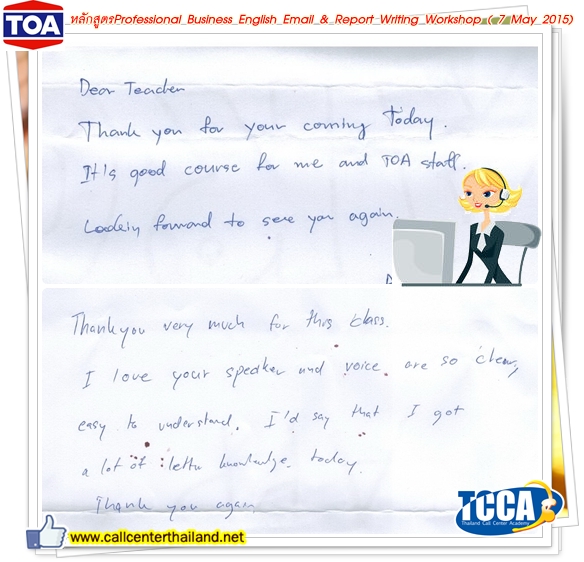 TOA
หลักสูตรProfessional Business English Email & Report Writing Workshop ( 7 May 2015)
Dear Teacher
Thank you for your coming Today.
It's good course for me and TOA staff.
forward to see you again.
Thank you very much for this class.
I love your speaker and voice are so clear,
easy to understand. I'd say that I got
a lot of knowledge today.
Thank you again
TCCA
Thailand Call Center Academy
www.callcenterthailand.net